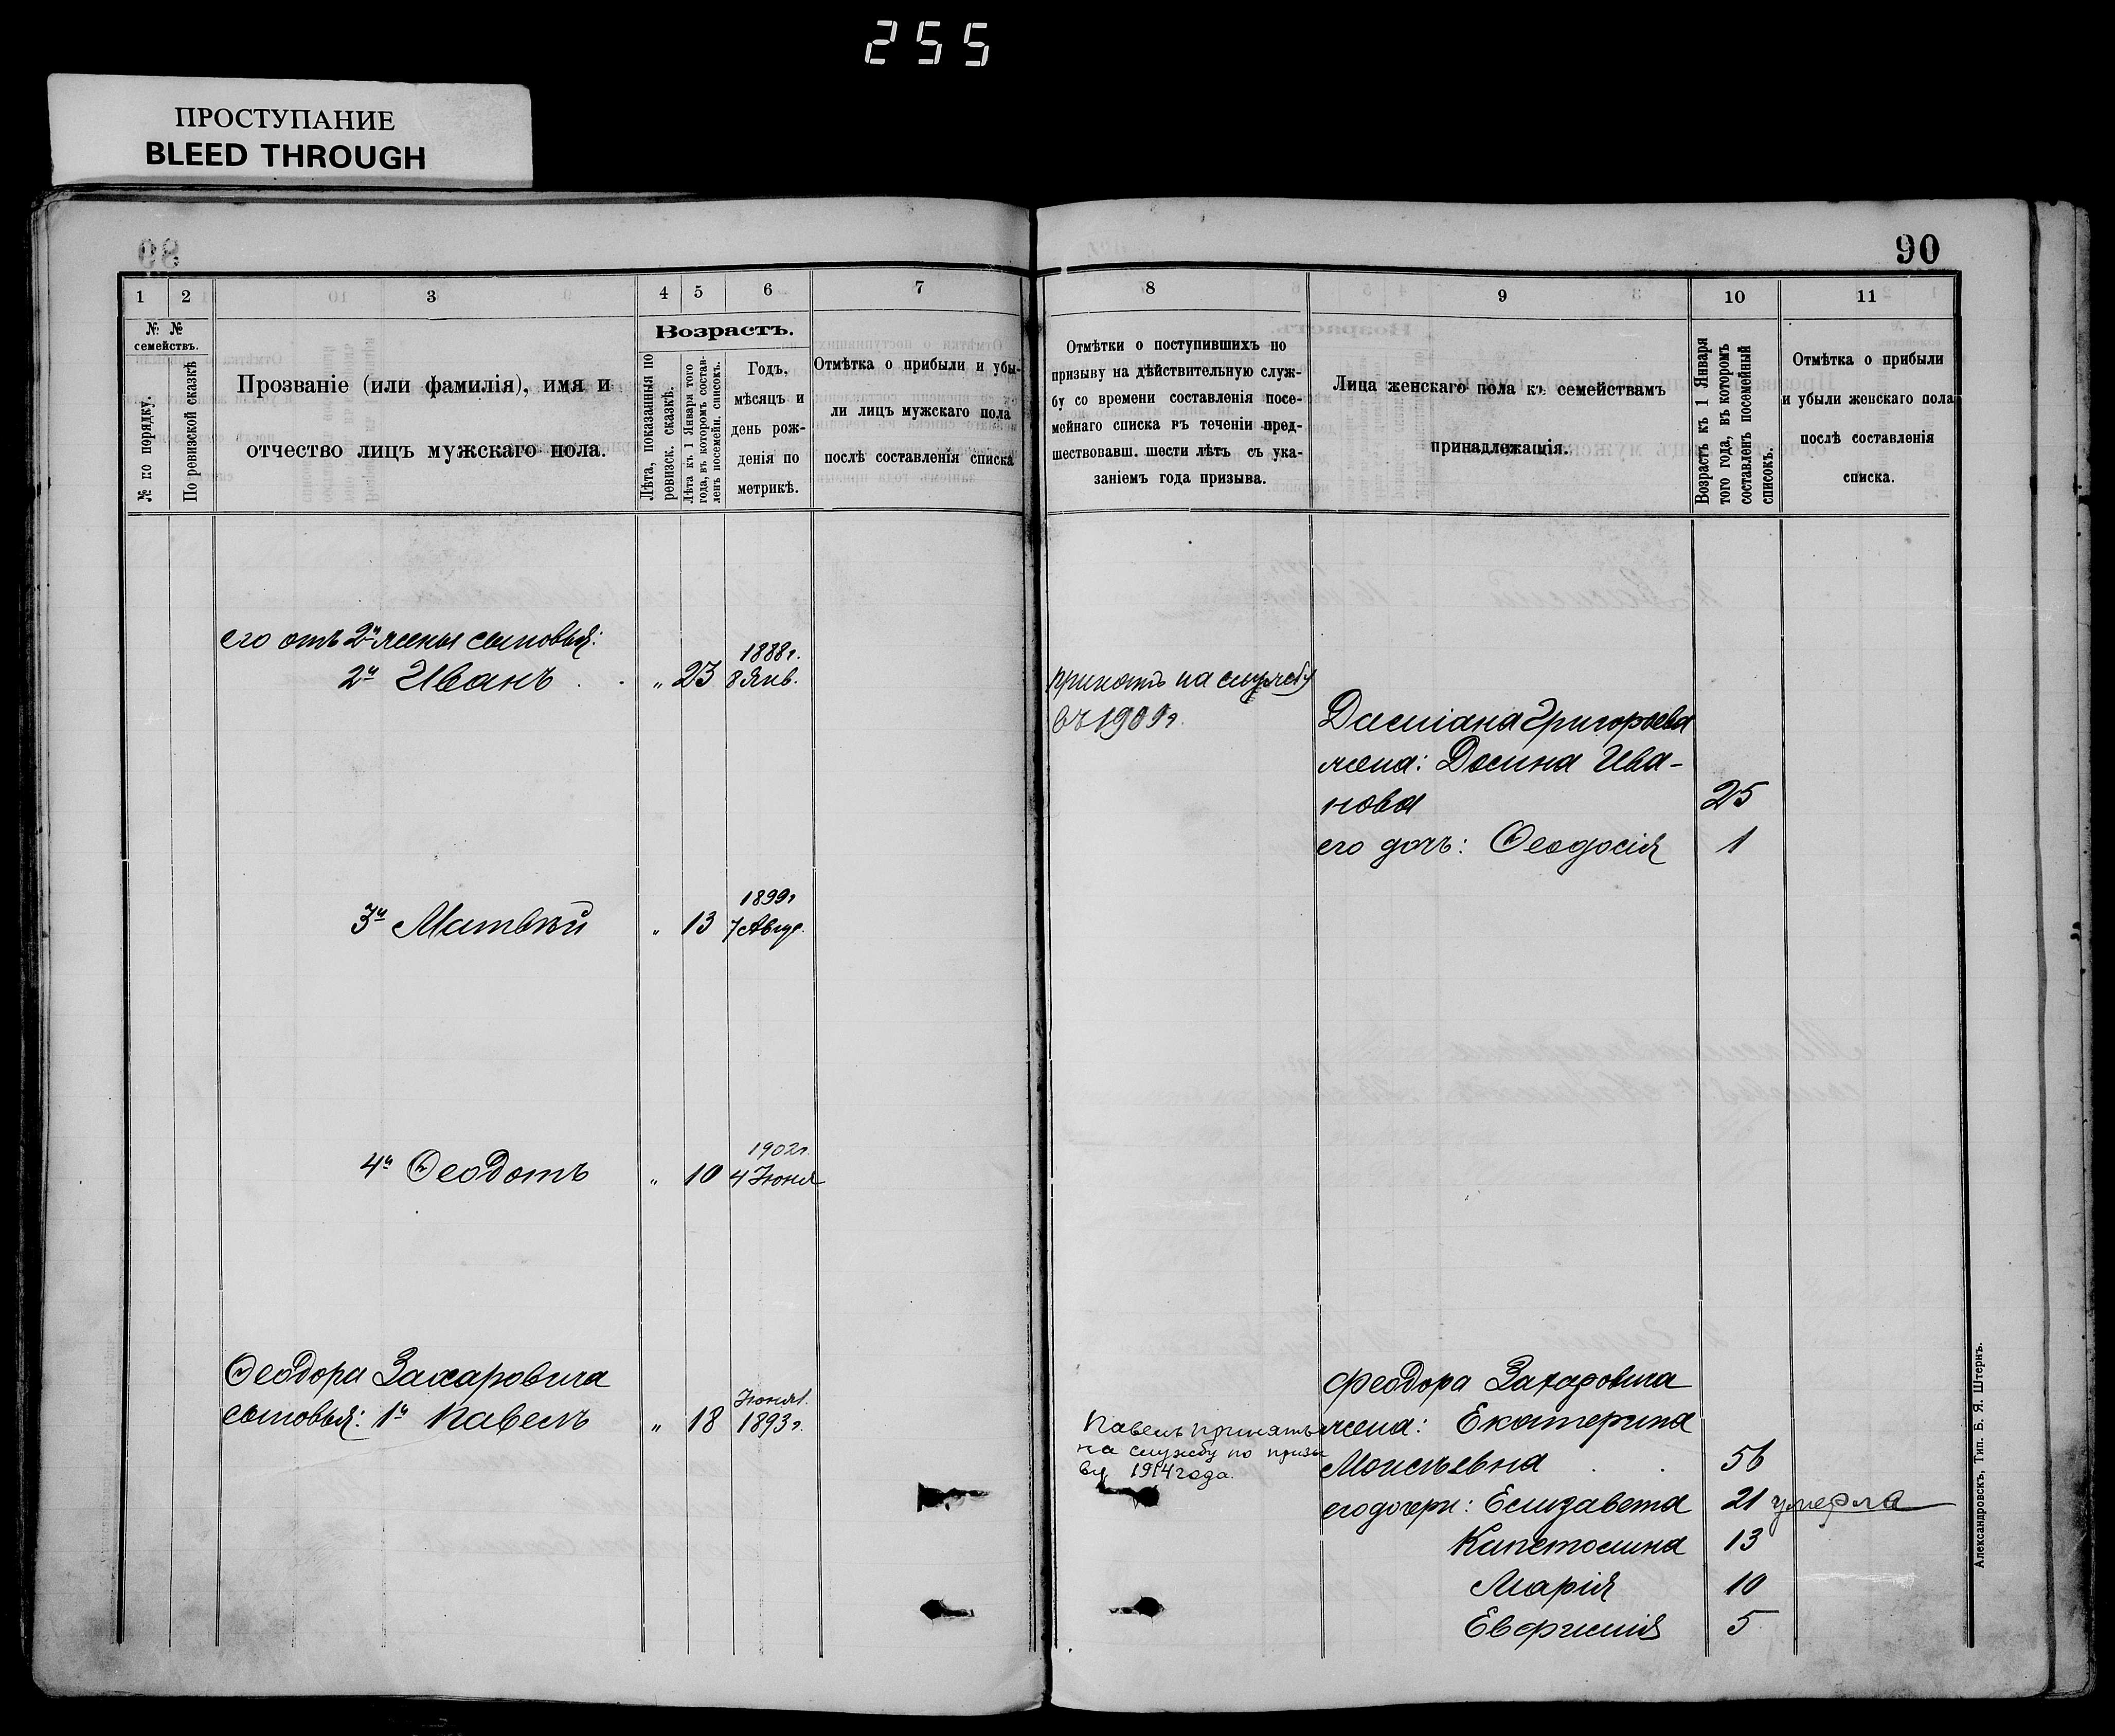 255
ПРОСТУПАНИЕ
BLEED THROUGH
90
1 2 3 4 5 6 7
№ № семействъ.
№ по порядку.
По ревизской сказкѣ
Прозваніе (или фамилія), имя и
отчество лицъ мужскаго пола.
Возрастъ.
Лѣта, показанныя по
ревизск. сказкѣ.
Лѣта къ 1 Января того
года, въ которомъ состав-
ленъ посемейн. списокъ.
Годъ,
мѣсяцъ и
день рож-
денія по
метрикѣ.
Отмѣтка о прибыли и убы-
ли лицъ мужскаго пола
послѣ составленія списка
его отъ 2й жены сыновья:
2й Иванъ " 23 1888г.
8 Янв.
3й Матвѣй " 13 1899г
7 Авгус.
4й Ѳеодотъ " 10 1902г.
4 Іюня
Ѳеодора Захаровича
сыновья: 1й Павелъ " 18 Іюня 1.
1893г.
8 9 10 11
Отмѣтки о поступившихъ по
призыву на дѣйствительную служ-
бу со времени составленія посе-
мейнаго списка въ теченіи пред-
шествовавш. шести лѣтъ съ ука-
заніемъ года призыва.
Лица женскаго пола къ семействамъ
принадлежащія.
Возрасть къ 1 Января
того года, въ которомъ
составленъ посемейный
списокъ.
Отмѣтка о прибыли
и убыли женскаго пола
послѣ составленія
списка.
принятъ на службу
въ 1909г.
Даміана Григорьева
жена: Домна Ива-
нова 25
его дочь: Ѳеодосія 1
Павелъ принятъ
на службу по призы
ву 1914 года.
Феодора Захаровича
жена: Екатерина
Моисѣевна 56
его дочери: Елизавета 21 умерла
Капетолина 13
Марія 10
Евфимія 5
Александровскъ, Тип. Б. Я. Штернъ.